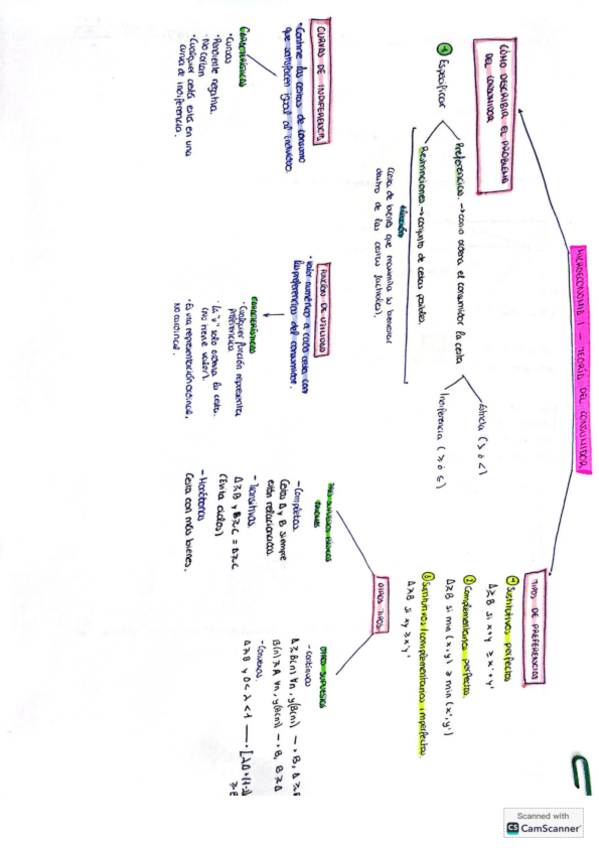 MICROECONOMÍA I - TEORÍA DEL CONSUMIDOR
CÓMO DESCRIBIR EL PROBLEMA
DEL CONSUMIDOR
① Especificar
Preferencias → como ordena el consumidor la cesta
Estricta (> ó <)
Indiferencia (≥ ó ≤)
Restricciones → conjunto de cestas posibles
ELECCIÓN
Cesta de bienes que maximiza su bienestar
dentro de las cestas factibles).
CURVAS DE INDIFERENCIA
· Contiene las cestas de consumo
que satisfacen igual al individuo.
CARACTERÍSTICAS
· Curvas
· Pendiente negativa.
· No cortan
· Cualquier cesta está en una
curva de indiferencia.
FUNCIÓN DE UTILIDAD
· Valor numérico a cada cesta con
las preferencias del consumidor.
CARACTERÍSTICAS
· Cualquier función representa
preferencia
· La "u" solo ordena la cesta.
(no tiene valor).
· Es una representación ordinal,
no cardinal.
TIPOS DE PREFERENCIAS
① Sustitutivos perfectos
A ≥ B si x+y ≥ x'+y'
② Complementarios perfectos.
A ≥ B si min (x,y) ≥ min (x',y')
③ Sustitutivos/complementarios imperfectos.
A ≥ B si xy ≥ x'y'
OTROS TIPOS
- Completas
Cesta A y B siempre
están relacionadas
- Transitivas
A ≥ B y B ≥ C = A ≥ C
(Evita ciclos)
- Monótonas
Cesta con más bienes.
OTROS SUPUESTOS
- Continuas
A ≥ B(n) ∀n, y B(n) → B, A ≥ B
B(n) ≥ A ∀n, y B(n) → B, B ≥ A
- Convexas.
A ≥ B y 0 < λ < 1 → [λA+(1-λ)
≥ B
Scanned with
CS CamScanner